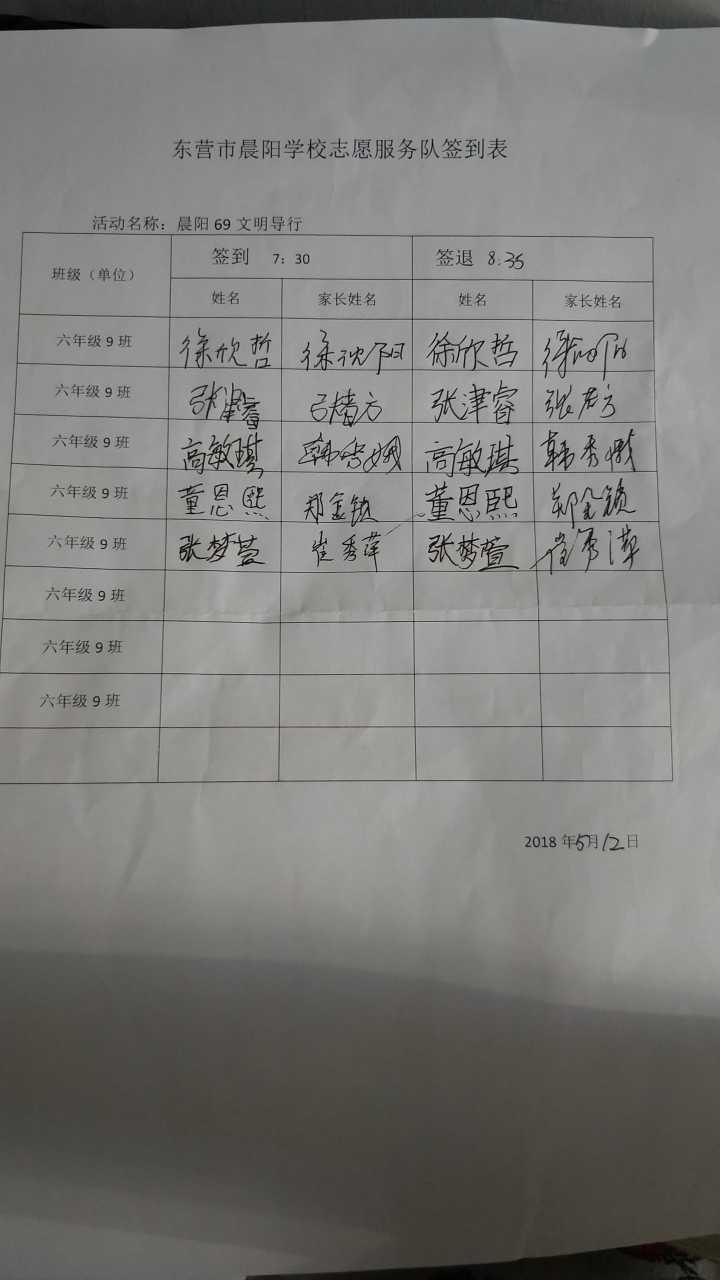 东营市晨阳学校志愿服务队签到表
活动名称：晨阳 69 文明导行
班级（单位） 签到 7：30 签退 8:35
姓名 家长姓名 姓名 家长姓名
六年级 9 班 徐欣哲 徐沈阳 徐欣哲
六年级 9 班 张津睿 张津睿
六年级 9 班 高敏琪 高敏琪
六年级 9 班 董恩熙 郑金锁 董恩熙 郑金锁
六年级 9 班 张梦萱 崔秀萍 张梦萱 崔秀萍
六年级 9 班
六年级 9 班
六年级 9 班
2018 年5月12日